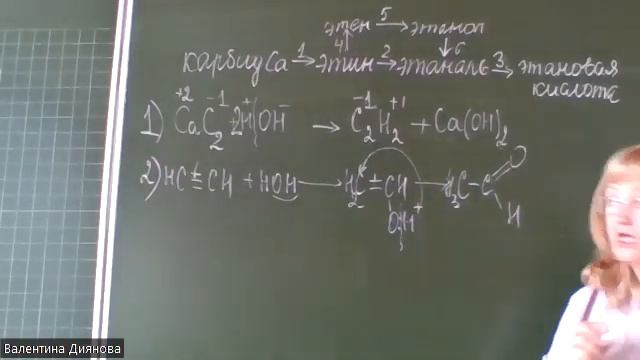 этен 5→ этанол
4↑ ↓6
карбид Ca 1→ этин 2→ этаналь 3→ этановая
кислота
1) Ca⁺²C₂⁻¹ + 2H⁺OH⁻ → C₂⁻¹H₂⁺¹ + Ca(OH)₂
2) HC≡CH + HOH → H₂C=CH → H₃C-C
O
H
OH⁺
Валентина Диянова